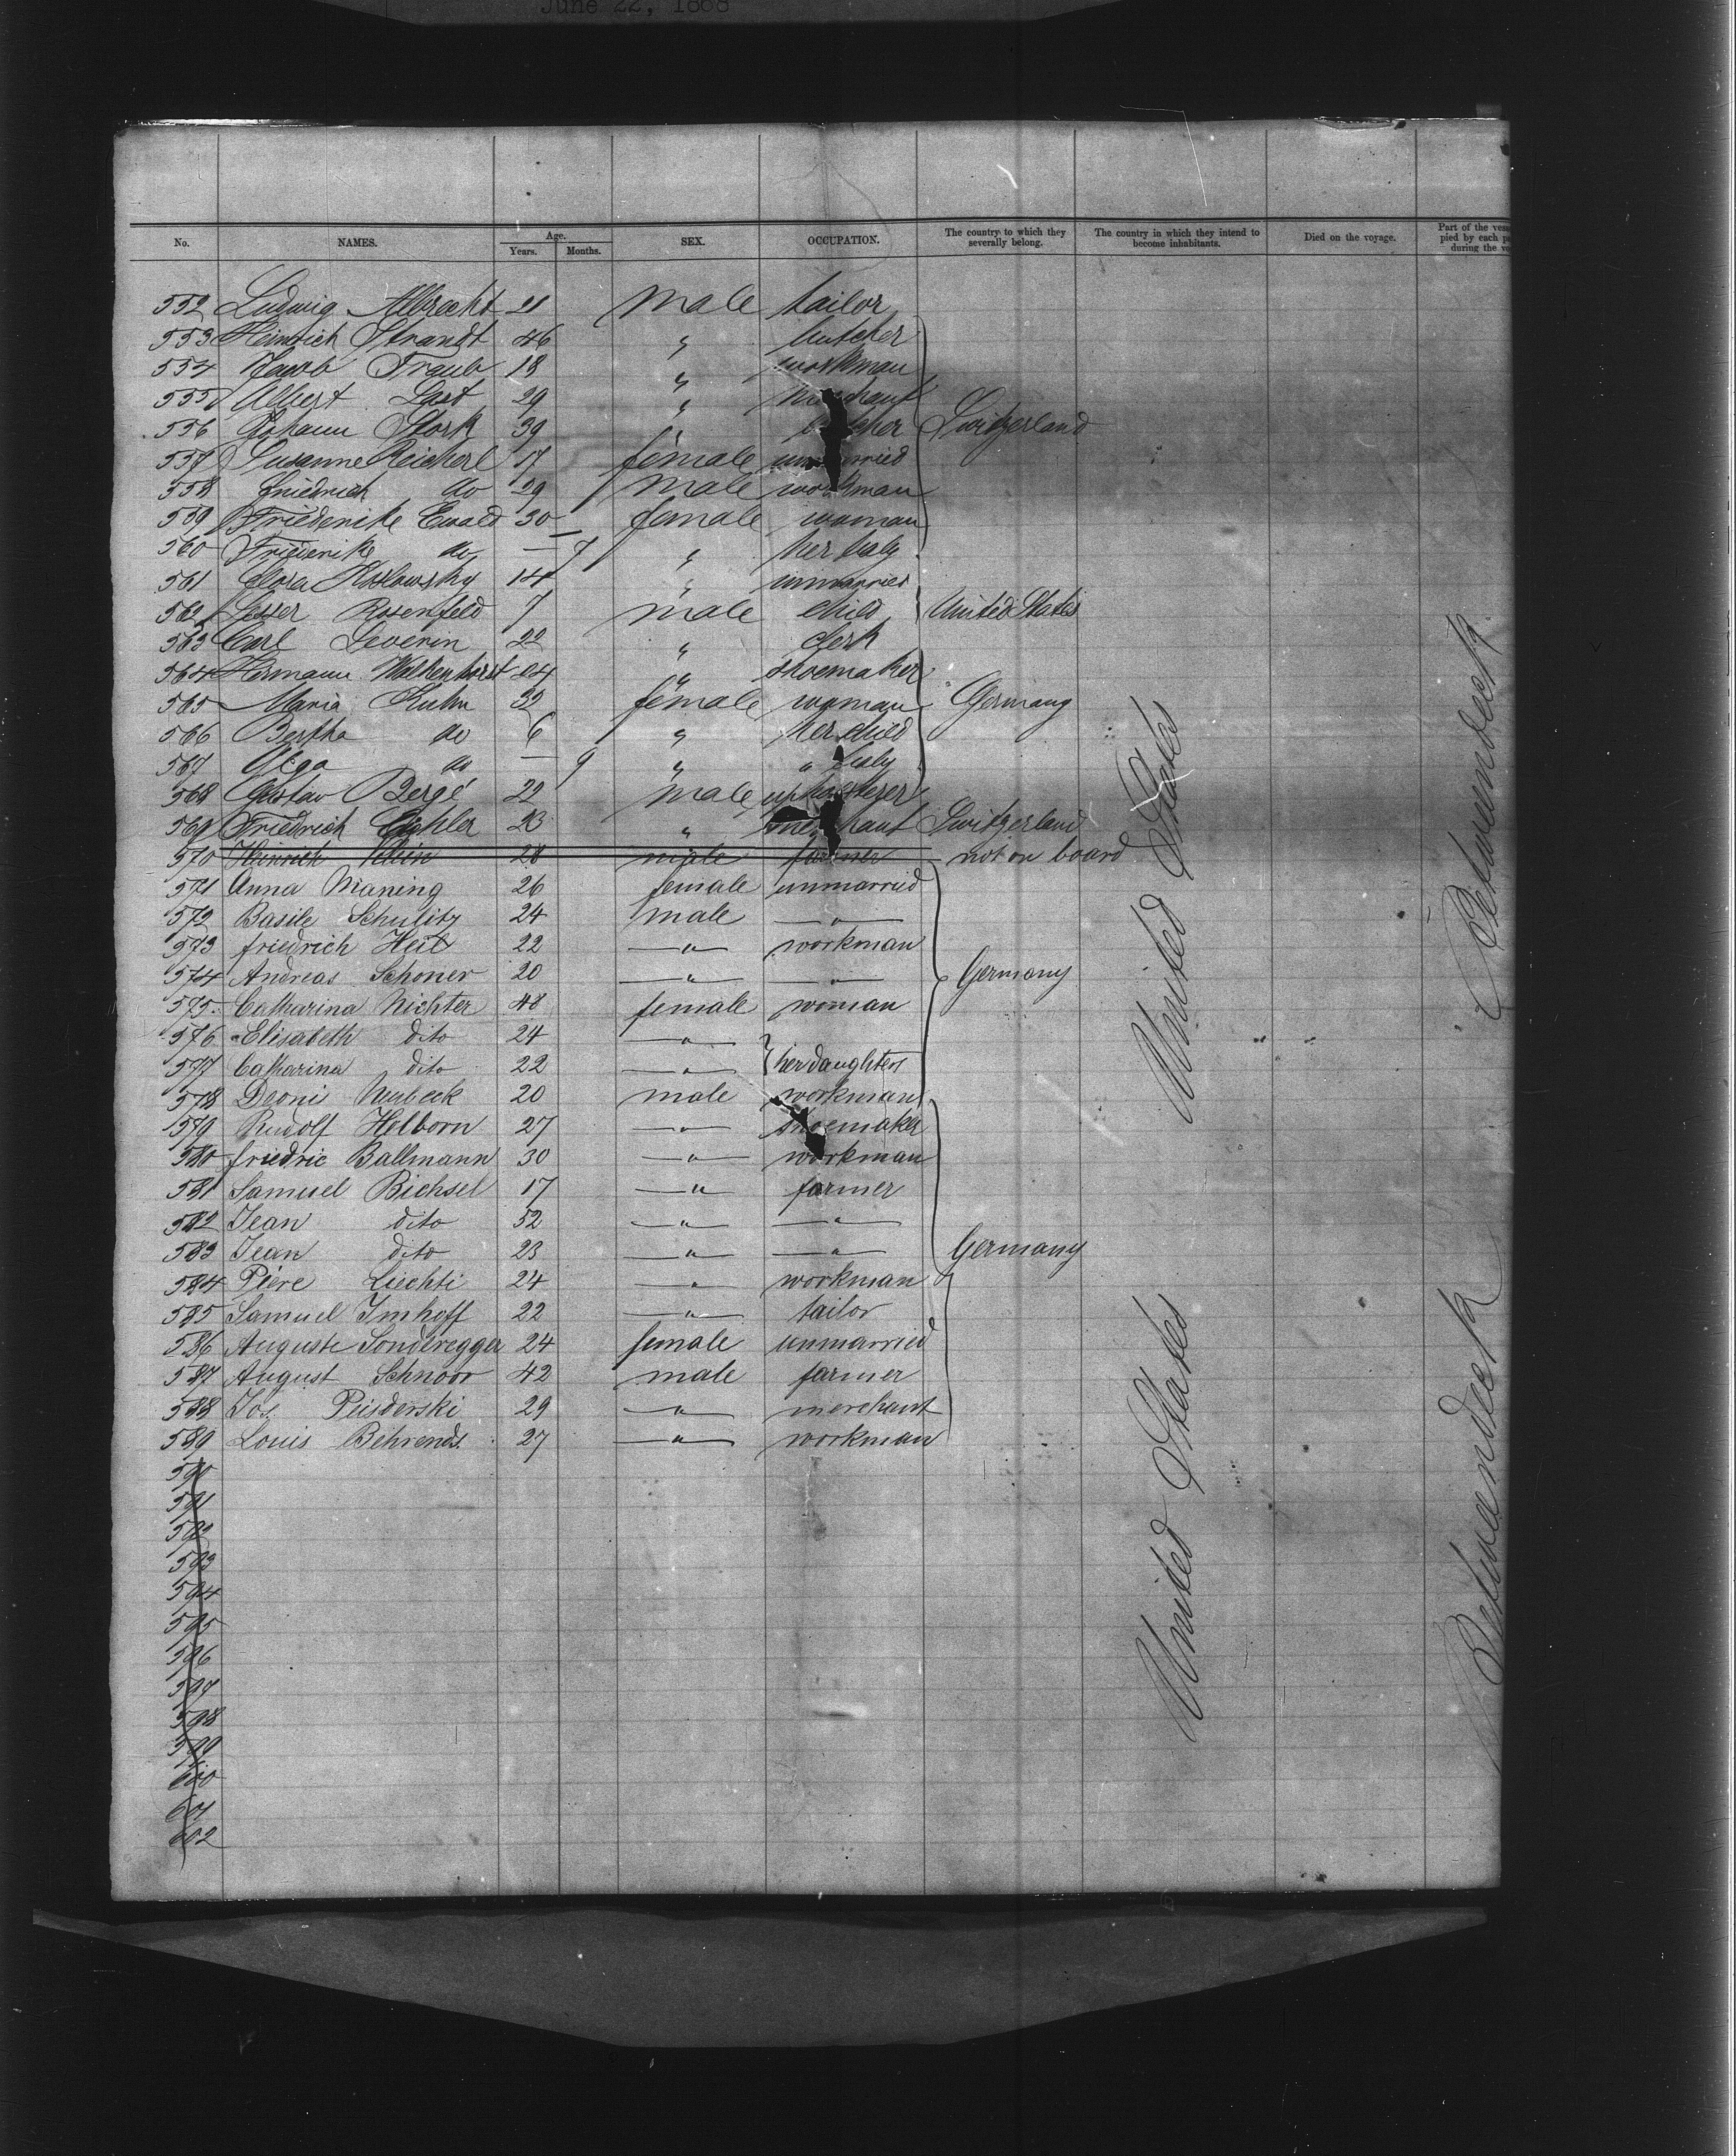 June 22, 1868
No. NAMES. Age. Years. Months. SEX. OCCUPATION. The country to which they severally belong. The country in which they intend to become inhabitants. Died on the voyage. Part of the vess pied by each p during the vo
552 Ludwig Albrecht 21 male tailor
553 Heinrich Strandt 46 " butcher
554 Jacob Traub 18 " workman
555 Albert Last 29 " merchant
556 Johann Stork 39 " butcher Switzerland
557 Susanne Reicherl 17 female unmarried
558 Friedrich do 29 male workman
559 Friederike Ewald 30 female woman
560 Friederike do — 7 " her baby
561 Clora Koslowsky 14 " unmarried
562 Lesser Rosenfeld 7 male child United States
563 Carl Severin 22 " clerk
564 Hermann Walkenhorst 24 " shoemaker
565 Maria Kuhn 32 female woman Germany
566 Bertha do 6 " her child
567 Olga do — 9 " " baby
568 Gustav Bergé 22 male upholsterer
569 Friedrich 23 " merchant Switzerland
570 Heinrich 28 male farmer not on board
571 Anna Maning 26 female unmarried
572 Basile Schulitz 24 male — " —
573 friedrich Heil 22 — " — workman
574 Andreas Schoner 20 — " — — " — Germany
575 Catharina Nichter 48 female woman
576 Elisabeth dito 24 — " —
577 Catharina dito 22 — " — her daughters
578 Deoni Nusbeck 20 male workman
579 Rudolf Helborn 27 — " — shoemaker
580 friedric Ballmann 30 — " — workman
581 Samuel Bichsel 17 — " — farmer
582 Jean dito 52 — " — — " —
583 Jean dito 23 — " — — " — Germany
584 Piere Liechti 24 — " — workman
585 Samuel Imhoff 22 — " — tailor
586 Auguste Sonderegger 24 female unmarried
587 August Schnoor 42 male farmer
588 Jos. Piisderski 29 — " — merchant
589 Louis Behrends. 27 — " — workman
590
591
592
593
594
595
596
597
598
599
600
601
602
United States
United States
Betweendeck
Betweendeck